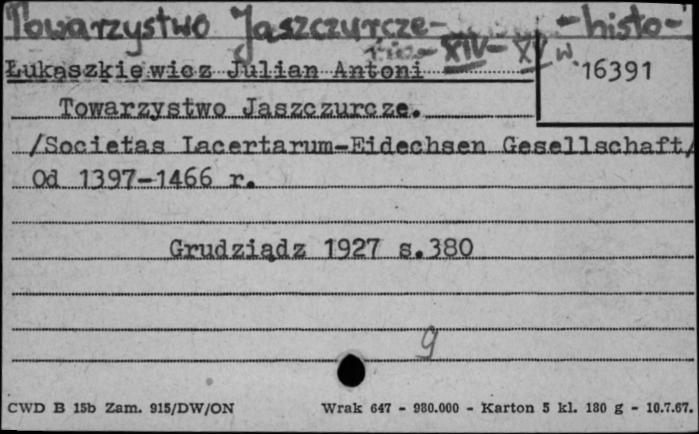 Towarzystwo Jaszczurcze - - histo-
ria - XIV - XV w.
Łukaszkiewicz Julian Antoni
16391
Towarzystwo Jaszczurcze.
/Societas Lacertarum-Eidechsen Gesellschaft/
Od 1397-1466 r.
Grudziądz 1927 s.380
g
CWD B 15b Zam. 915/DW/ON Wrak 647 - 980.000 - Karton 5 kl. 180 g - 10.7.67.